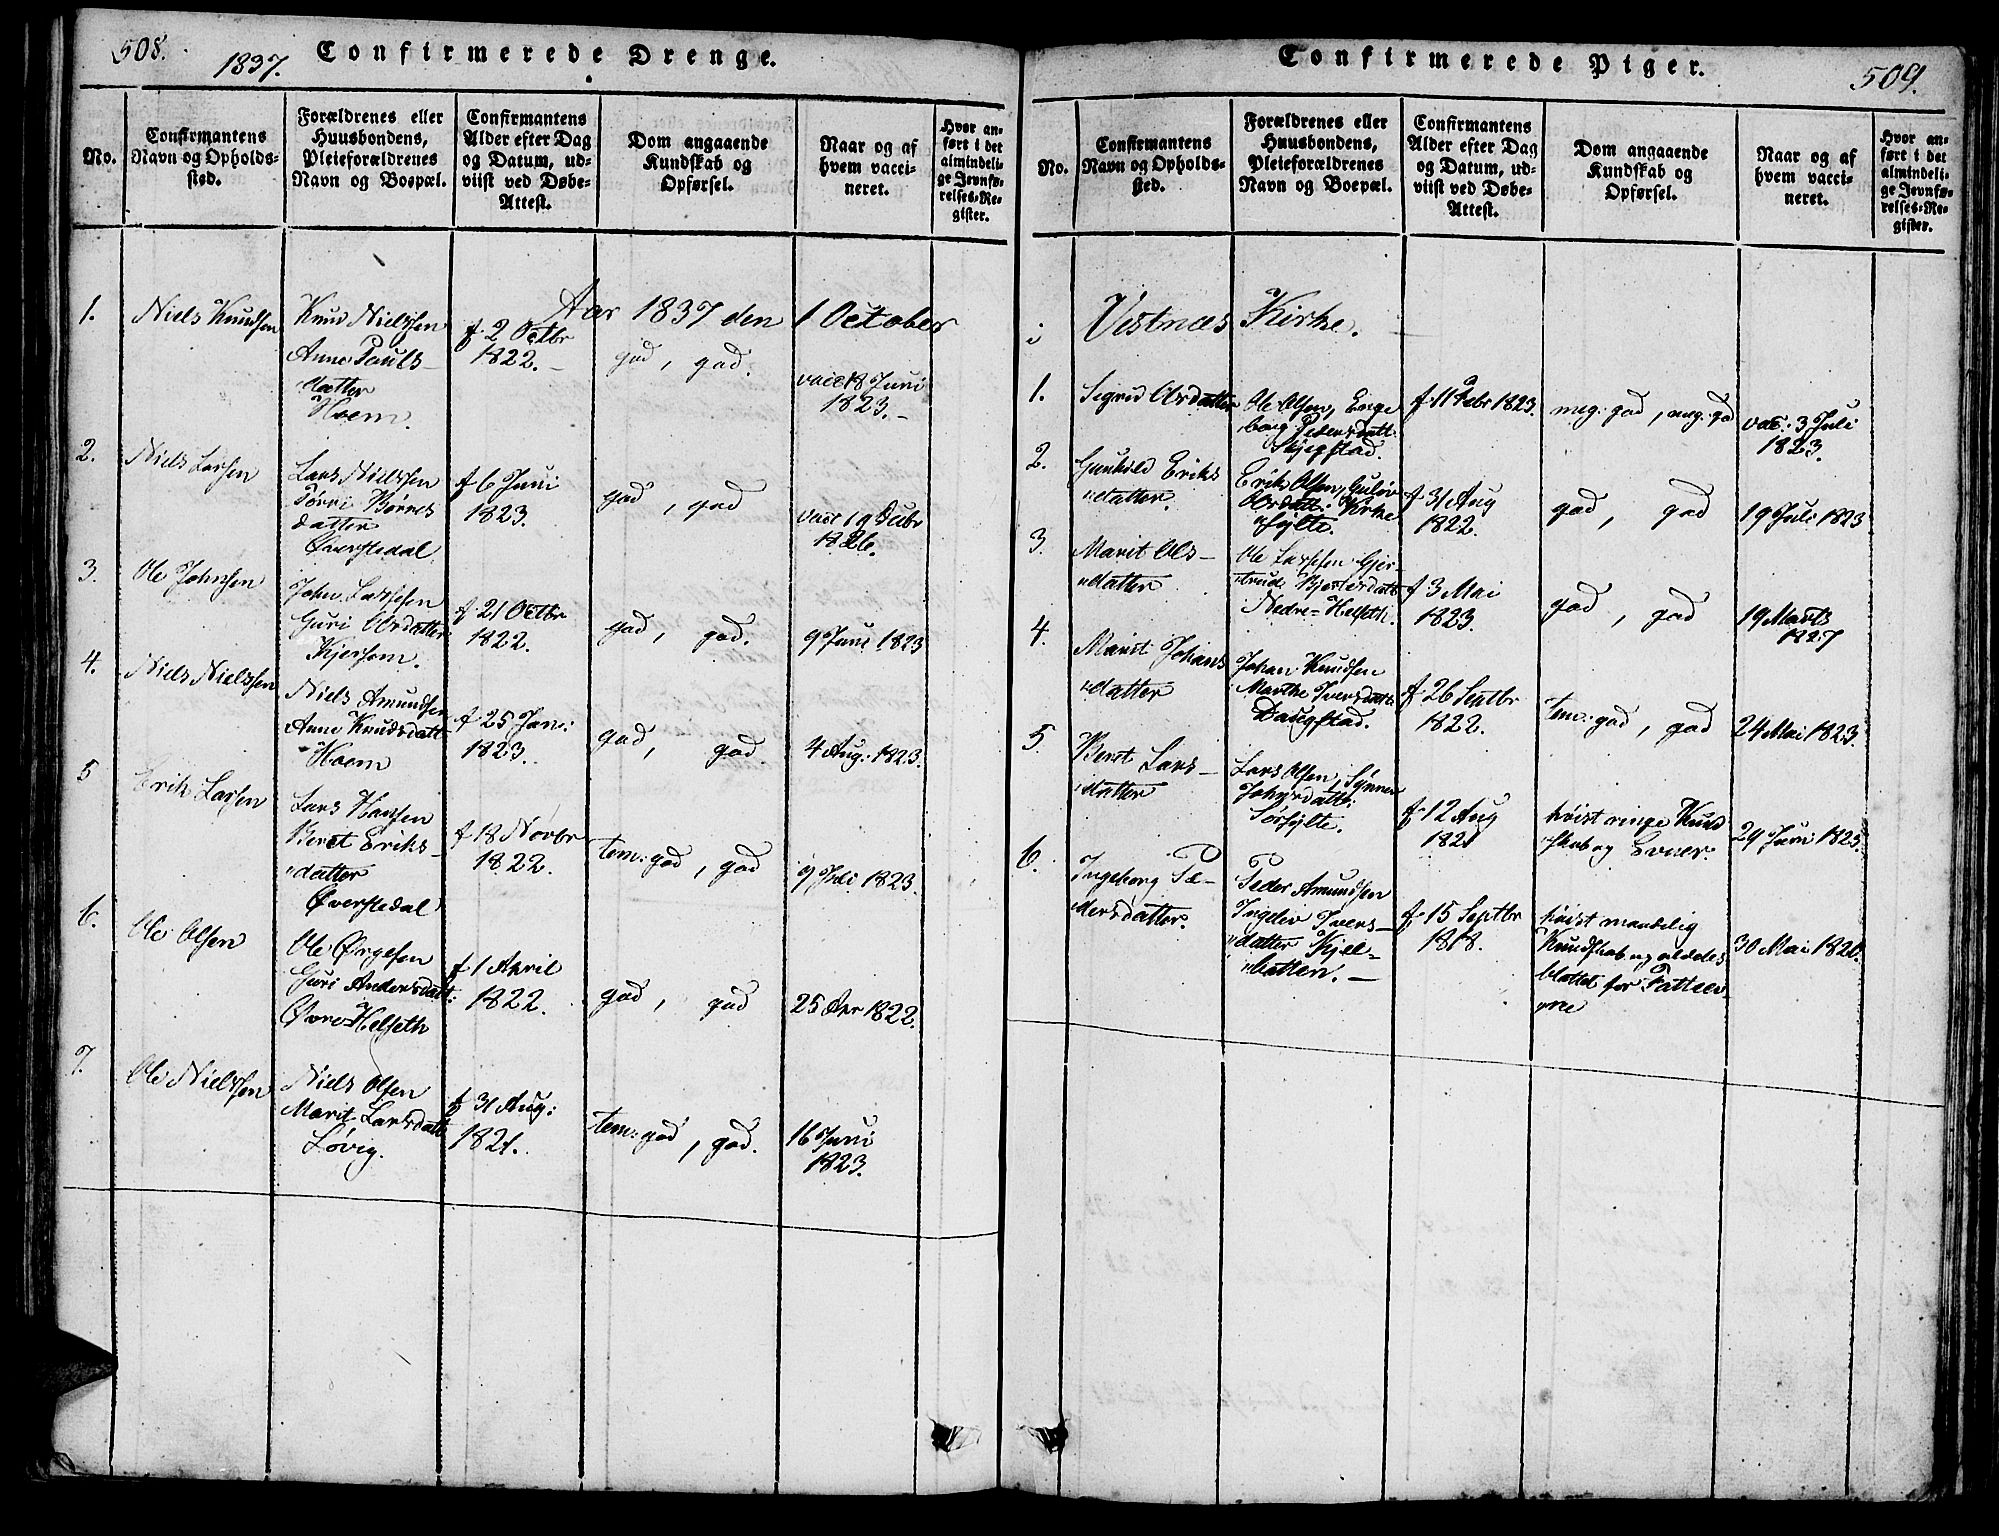 508.
1837. Confirmerede Drenge.
No.
Confirmantens
Navn og Opholds-
sted.
Forældrenes eller
Huusbondens,
Pleieforældrenes
Navn og Boepæl.
Confirmantens
Alder efter Dag
og Datum, ud-
viist ved Døbe-
Attest.
Dom angaaende
Kundskab og
Opførsel.
Naar og af
hvem vacci-
neret.
Hvor an-
ført i det
almindeli-
ge Jevnfø-
relses-Re-
gister.
Aar 1837 den 1 October
1.
Niels Knudsen
Knud Nielssen
Anne Pauls-
datter
Hoem.
f. 2 Octbr
1822.
god, god.
vacc 18 Juni
1823.
2.
Niels Larsen
Lars Nielssen
datter
Øverstedal
f 6 Juni
1823.
god, god
1826.
3.
Ole Johnsen
John Larssen
Guri Olsdatter
Kjersem.
f. 21 Octbr
1822.
god, god.
9 Juni 1823
4.
Niels Nielssen
Niels Amundsen
Anne Knudsdatt
Hoem
f 25 Jan:
1823.
god, god.
4 Aug: 1823.
5
Erik Larsen
Lars Hansen
Beret Eriks-
datter
Øverstedal
f 18 Novbr
1822.
tem: god, god
9 Juli 1823.
6.
Ole Olsen
Ole Ørgesen
Guri Andersdatt:
Øvre Helseth
f 1 April
1822.
god, god
25 Apr 1822.
7.
Ole Nielssen
Niels Olsen
Marit Larsdatt
Løvig.
f 31 Aug:
1821.
tem: god, god.
16 Juni
1823.
Confirmerede Piger.
509.
No.
Confirmantens
Navn og Opholds-
sted.
Forældrenes eller
Huusbondens,
Pleieforældrenes
Navn og Boepæl.
Confirmantens
Alder efter Dag
og Datum, ud-
viist ved Døbe-
Attest.
Dom angaaende
Kundskab og
Opførsel.
Naar og af
hvem vacci-
neret.
Hvor an-
ført i det
almindeli-
ge Jevnfø-
relses-Re-
gister.
i Vestnæs Kirke.
1.
Sigrid Olsdatter
Ole Olsen, Enge
borg Pedersdatt:
Skjegstad.
f. 11 Febr 1823.
meg: god, meg: god
vac: 3 Juli
1823.
2.
Gunhild Eriks
datter.
Erik Olsen,
Olsdatt: Kirke
fylte.
f. 31 Aug
1822.
god, god
19 Juli 1823
3.
Marit Ols-
datter
Ole Larssen Gjer-
trud
Nedre-Helseth.
f 3 Mai
1823.
god, god
19 Marts
1827
4.
Marit Johans
datter
Johan Knudsen
Marthe Iversdatt:
Daugstad.
f. 26 Septbr
1822.
tem: god, god
24 Mai 1823.
5.
Beret Lars-
datter
Lars Olsen, Synnev
Johnsdatt:
Sørfylte.
f. 12 Aug
1821
høist ringe Kund
skab og Evner:
29 Juni 1823.
6.
Ingeborg Pe-
dersdatter.
Peder Amundsen
Ingelev Ivers-
datter Kjel-
botten.
f. 15 Septbr
1818.
høist mandelig
Kundskab og aldeles
blottet for Fatteev-
ne
30 Mai 1820.